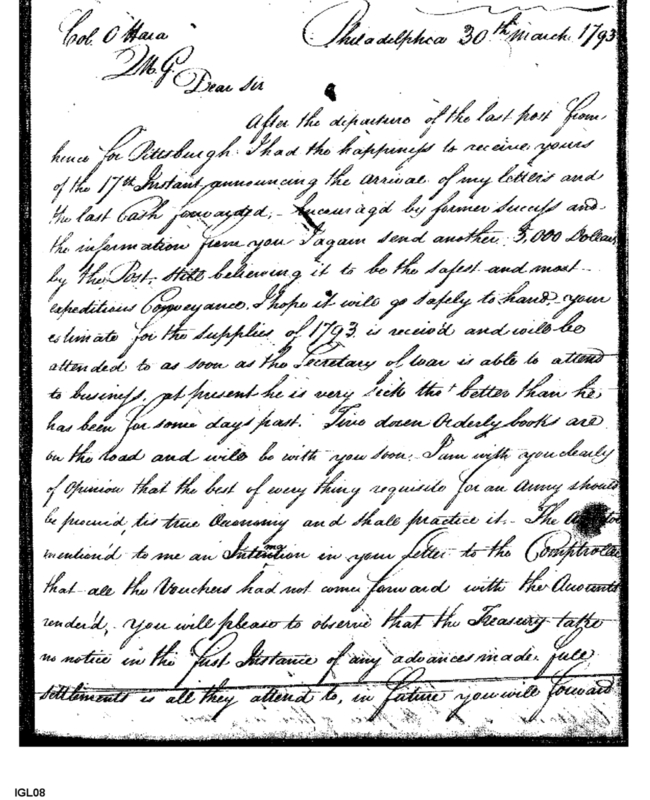 Col. O Hara
Philadelphia 30th March 1793
Q M G
Dear Sir
After the departure of the last post from
hence for Pittsburgh I had the happiness to receive yours
of the 17th Instant, announcing the arrival of my letters and
the last Cash forwarded, Encourag'd by former success and
the information from you I again send another 5,000 Dollars
by the Post, still believing it to be the safest and most
expeditious Conveyance. I hope it will go safely to hand, your
estimate for the supplies of 1793 is receiv'd and will be
attended to as soon as the Secretary of War is able to attend
to business, at present he is very sick tho' better than he
has been for some days past. Two dozen Orderly books are
on the road and will be with you soon. I am with you clearly
of Opinion that the best of every thing requisite for an Army should
be procured, tis true Œconomy and shall practice it. The
mention'd to me an Intimation in your Letter to the Comptroller
that all the Vouchers had not come forward with the Accounts
render'd, you will please to observe that the Treasury take
no notice in the first Instance of any advances made. full
settlements is all they attend to, in future you will forward
IGL08